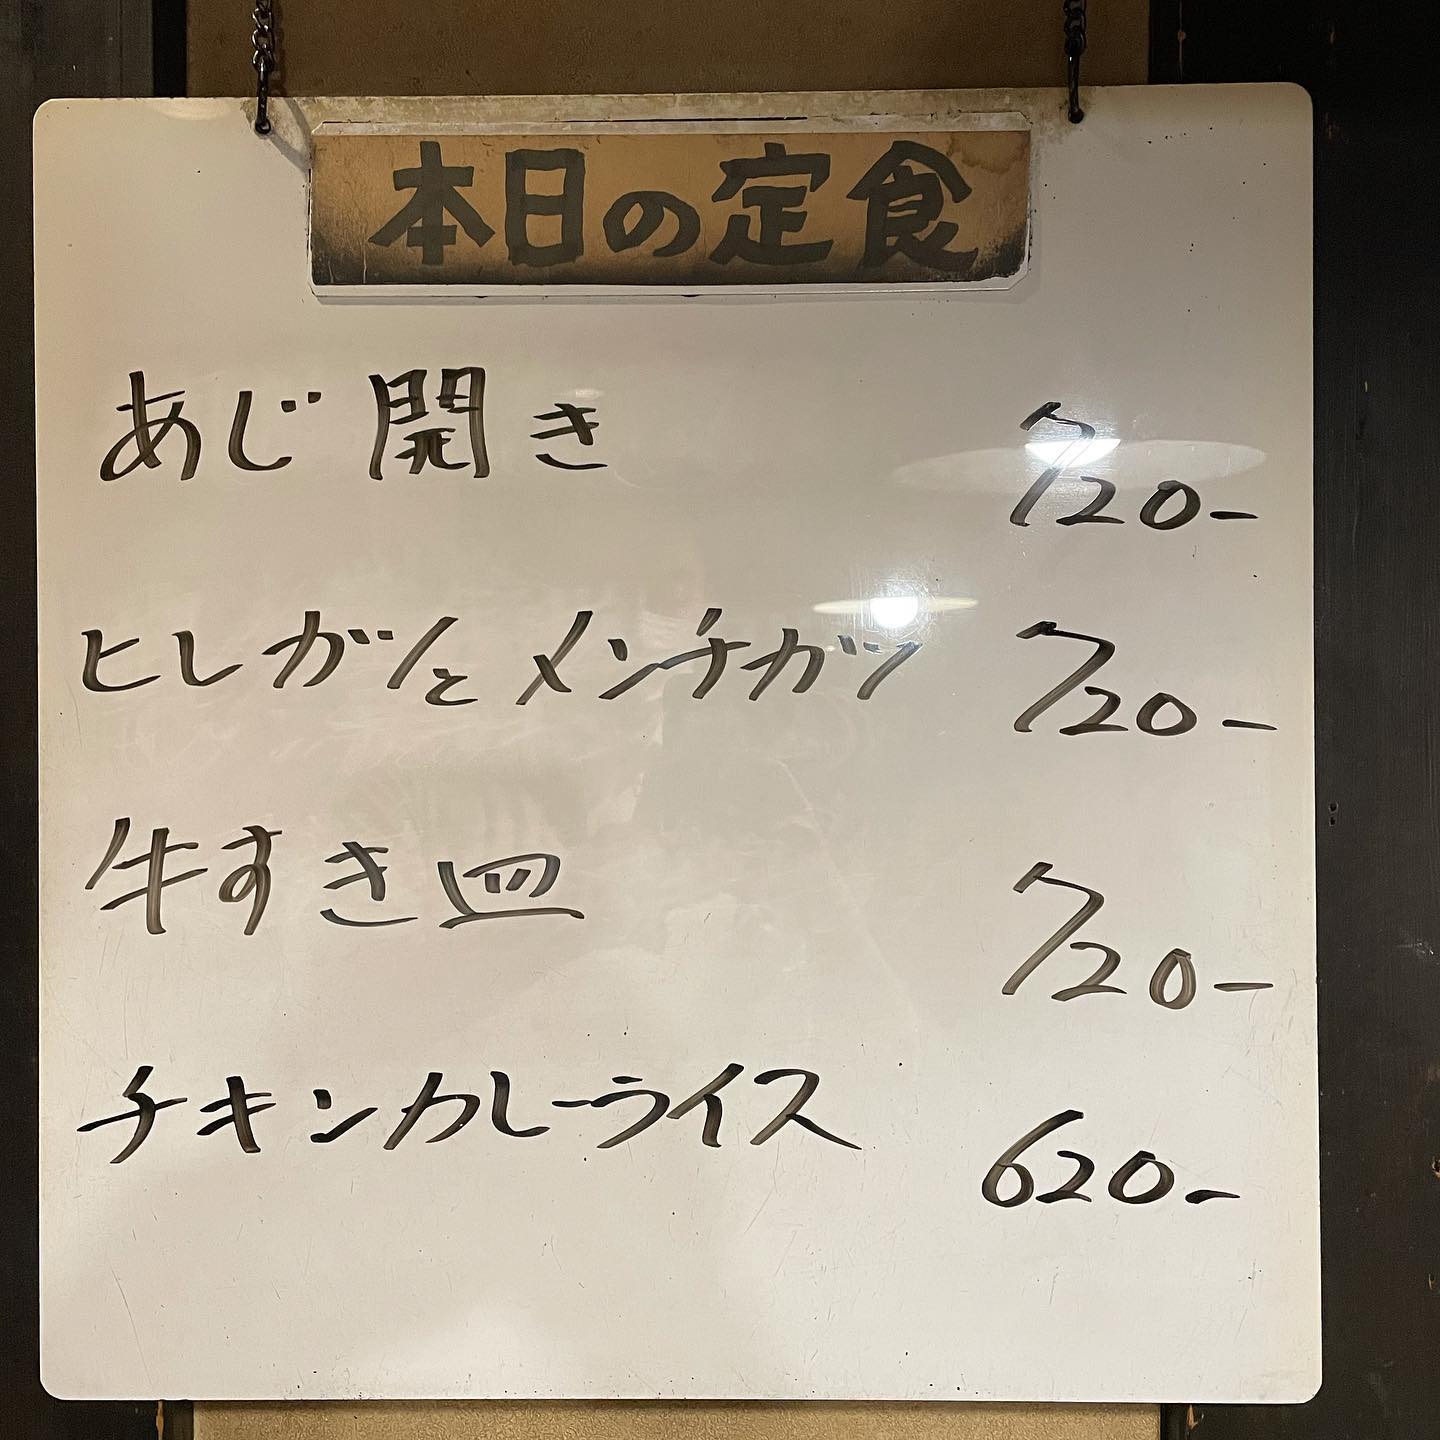 本日の定食
あじ開き 720-
ヒレガツとメンチガツ 720-
牛すき皿 720-
チキンカレーライス 620-